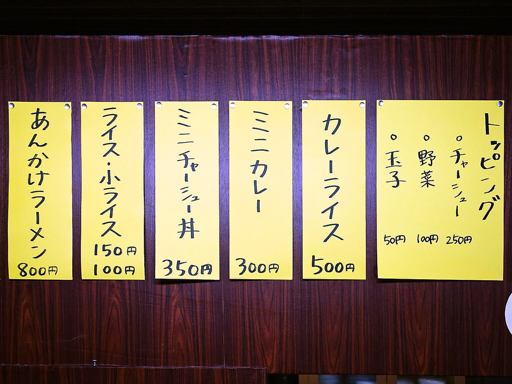 トッピング
。チャーシュー 250円
。野菜 100円
。玉子 50円
カレーライス
500円
ミニカレー
300円
ミニチャーシュー丼
350円
ライス・小ライス
150円
100円
あんかけラーメン
800円